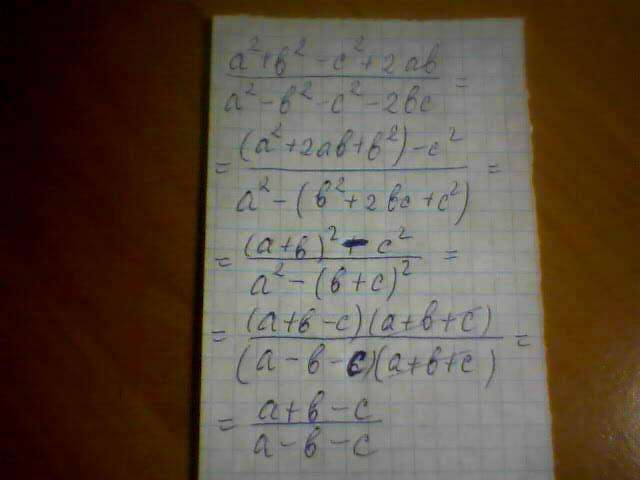 a²+b²-c²+2ab
a²-b²-c²-2bc =
= (a²+2ab+b²)-c²
a²-(b²+2bc+c²) =
= (a+b)²-c²
a²-(b+c)² =
= (a+b-c)(a+b+c)
(a-b-c)(a+b+c) =
= a+b-c
a-b-c